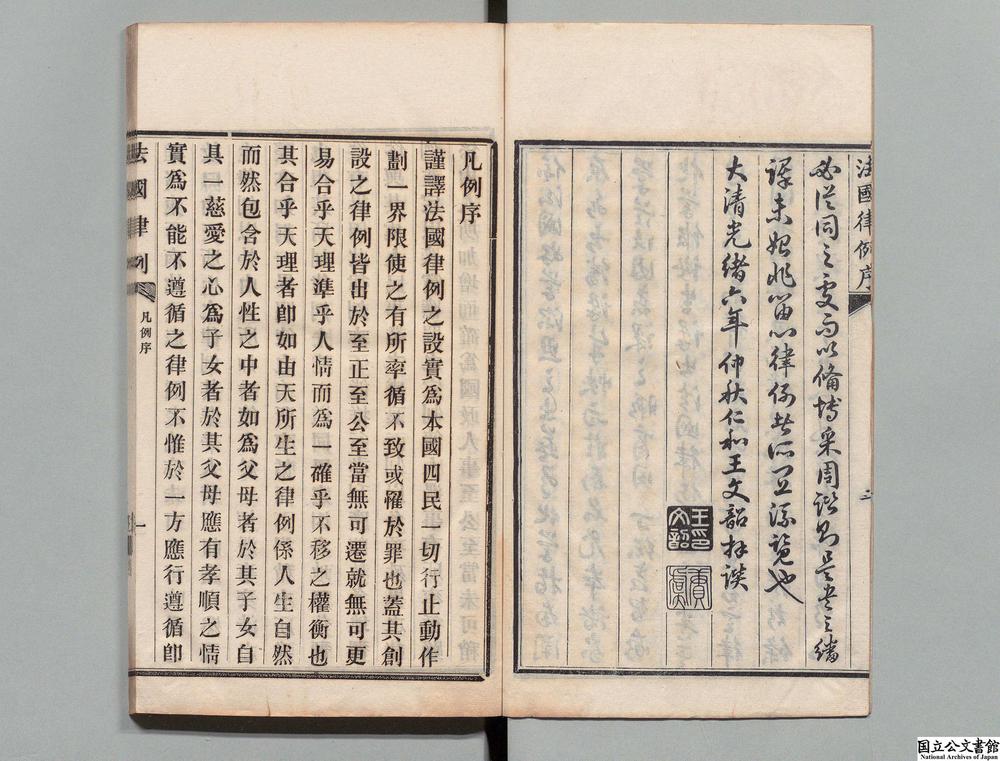 法國律例序
二
必從同之處而以備博采周諮則是書之繙
譯未始非留心律例者所宜流覽也
大清光緒六年仲秋仁和王文韶拜譔
王文韶印
凡例序
謹譯法國律例之設實爲本國四民一切行止動作
劃一界限使之有所率循不致或罹於罪也蓋其創
設之律例皆出於至正至公至當無可遷就無可更
易合乎天理準乎人情而爲一確乎不移之權衡也
其合乎天理者卽如由天所生之律例係人生自然
而然包含於人性之中者如爲父母者於其子女自
具一慈愛之心爲子女者於其父母應有孝順之情
實爲不能不遵循之律例不惟於一方應行遵循卽
法國律例
凡例序
一
国立公文書館
National Archives of Japan